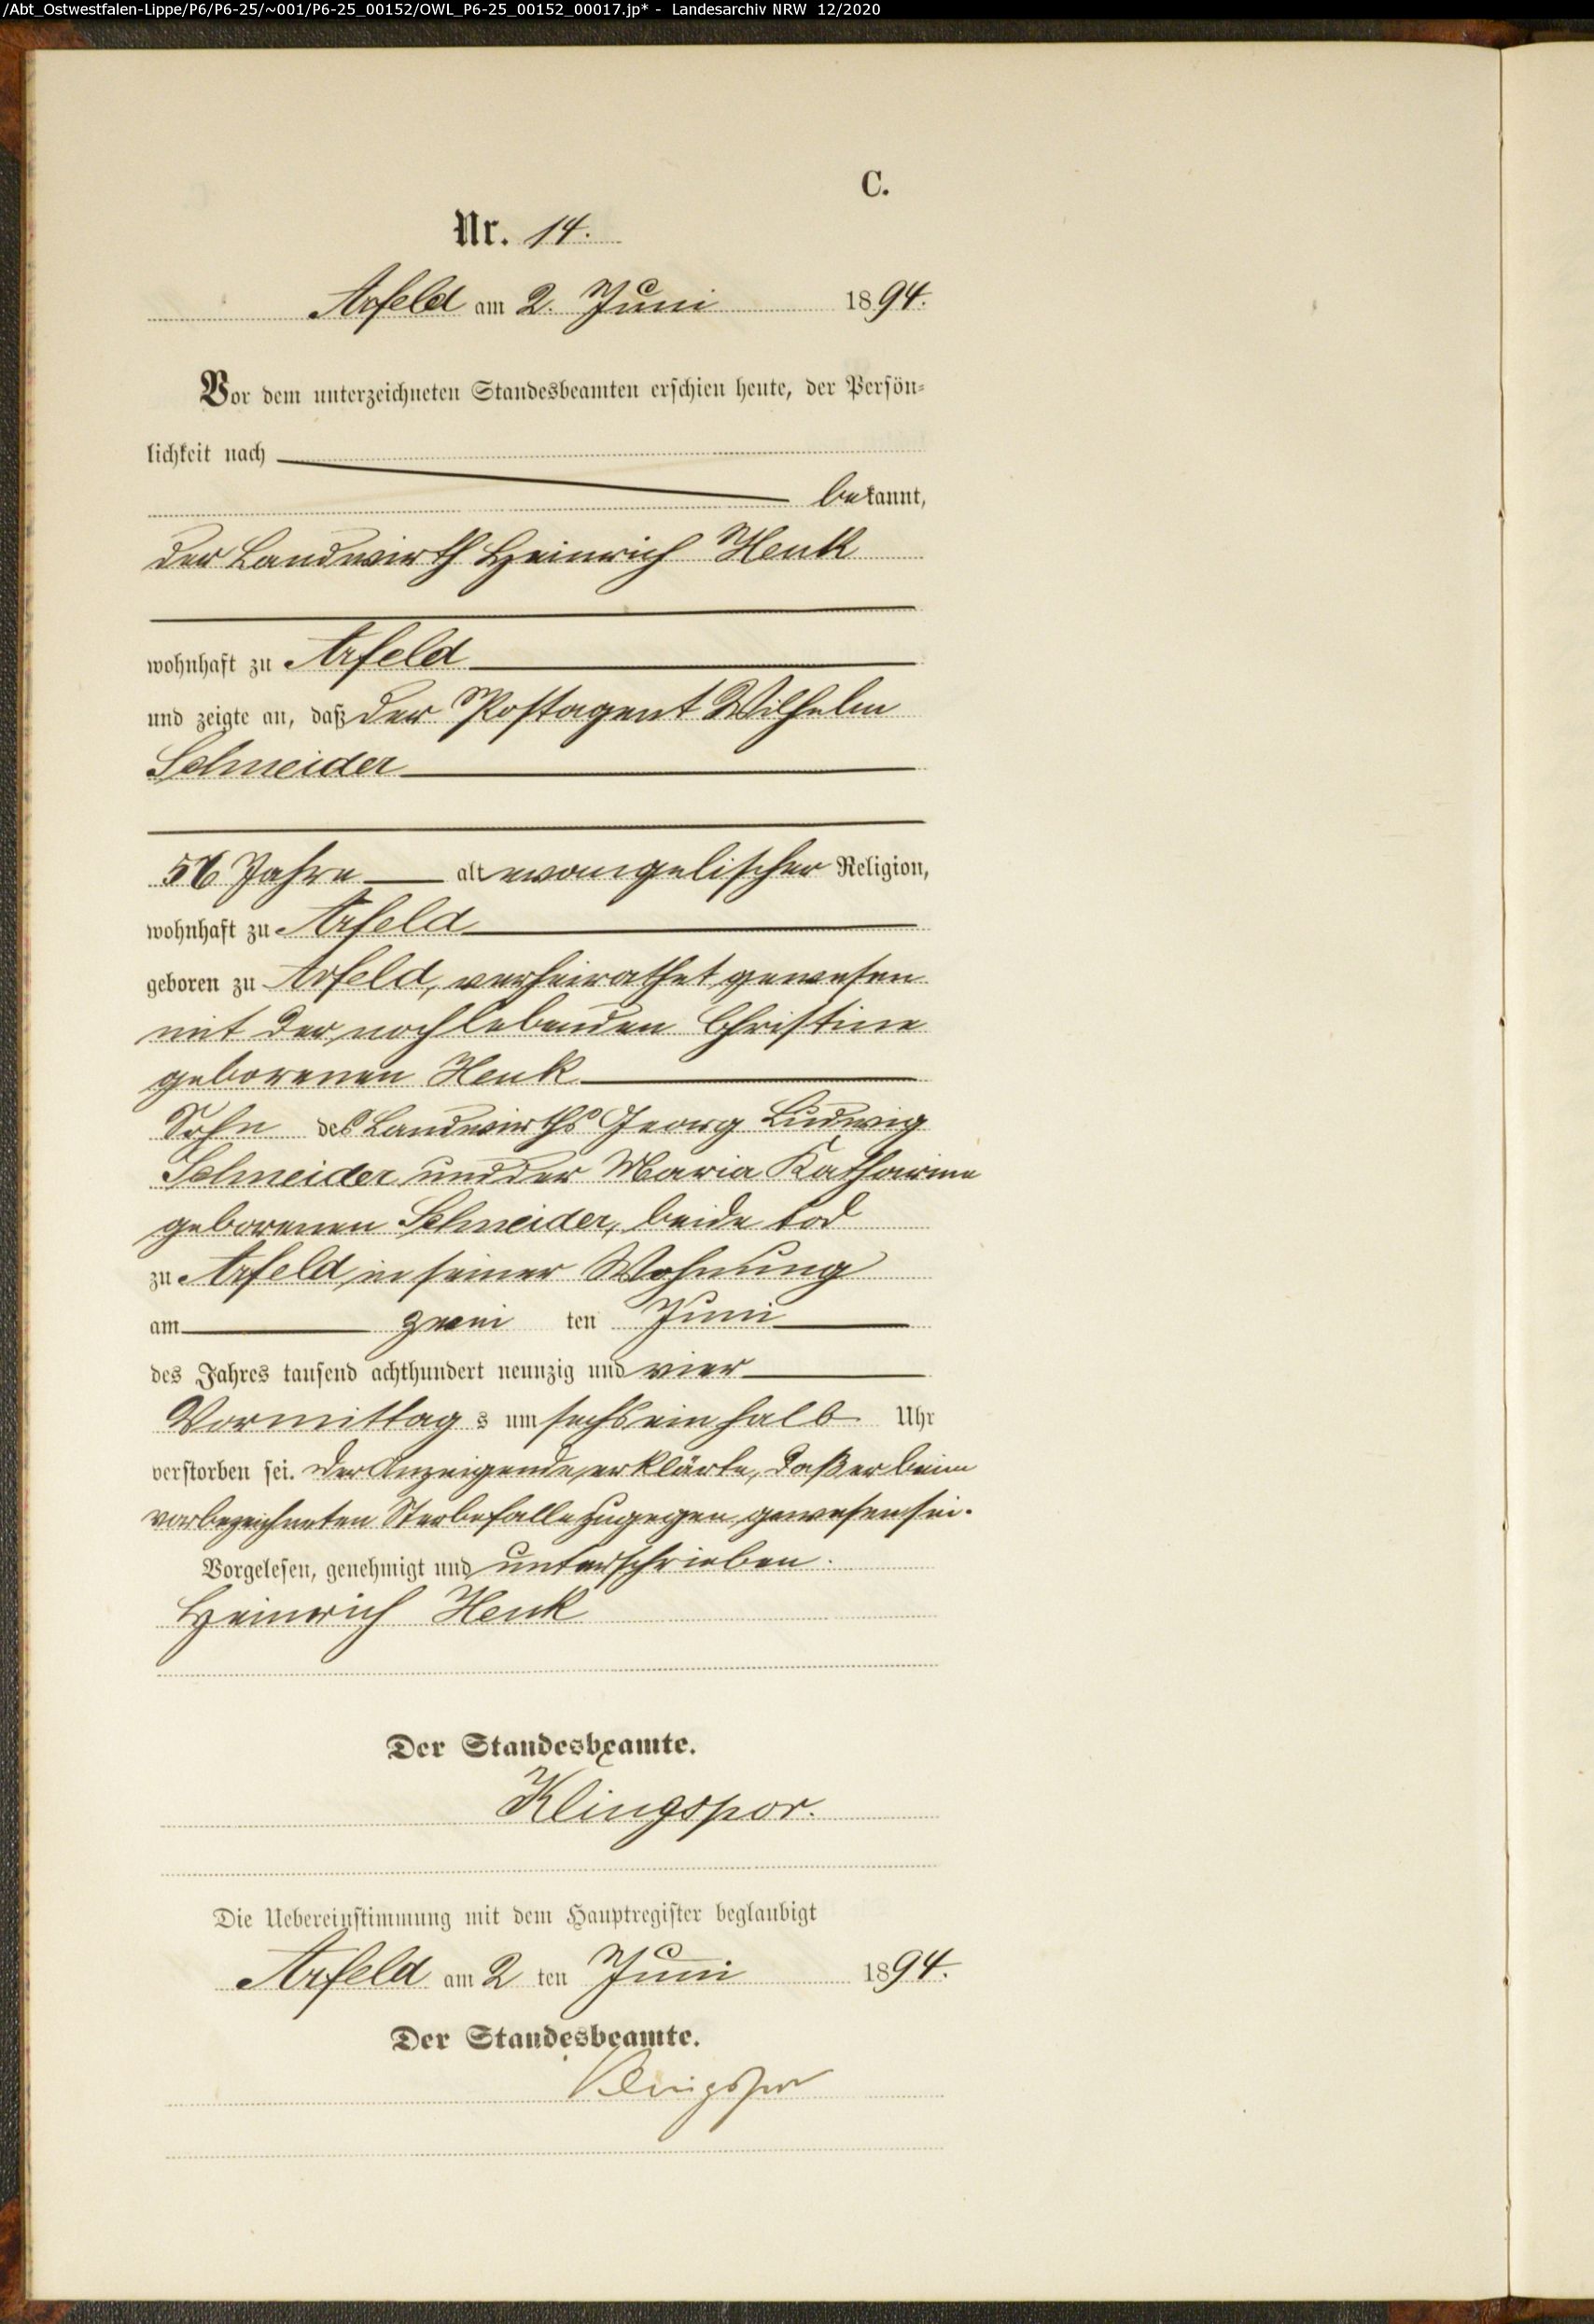 /Abt_Ostwestfalen-Lippe/P6/P6-25/~001/P6-25_00152/OWL_P6-25_00152_00017.jp* - Landesarchiv NRW 12/2020
C.
Nr. 14.
Arfeld am 2. Juni 1894.
Vor dem unterzeichneten Standesbeamten erschien heute, der Persön-
lichkeit nach
bekannt,
der Landwirth Heinrich Henk
wohnhaft zu Arfeld
und zeigte an, daß der Postagent Wilhelm
Schneider
Jahre alt evangelischer Religion,
wohnhaft zu Arfeld
geboren zu Arfeld, verheirathet gewesen
mit der noch lebenden Christine
geborenen Henk
Sohn des Landwirths Georg Ludwig
Schneider und der Maria Katharine
geborenen Schneider, beide tod
zu Arfeld in seiner Wohnung
am zwei ten Juni
des Jahres tausend achthundert neunzig und vier
Vormittag s um sechs ein halb Uhr
verstorben sei. Der Anzeigende erklärte, daß er beim
vorbezeichneten Sterbefalle zugegen gewesen sei.
Vorgelesen, genehmigt und unterschrieben.
Heinrich Henk
Der Standesbeamte.
Klingspor.
Die Uebereinstimmung mit dem Hauptregister beglaubigt
Arfeld am 2 ten Juni 1894.
Der Standesbeamte.
Klingspor